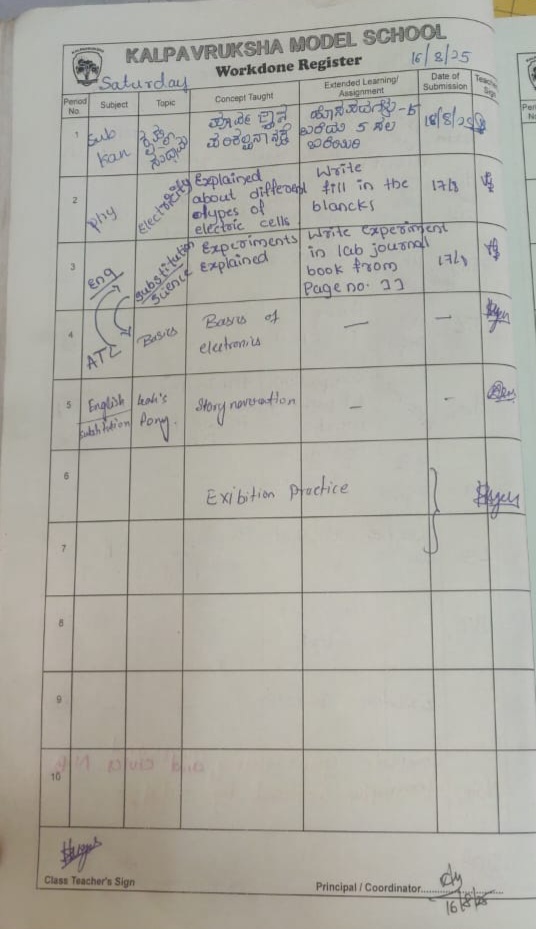 KALPAVRUKSHA MODEL SCHOOL
Workdone Register
16/8/25
Saturday
Period No.
Subject
Topic
Concept Taught
Extended Learning/ Assignment
Date of Submission
1
Sub
Kan
ಬರೆಯಿರಿ
2
Phy
Electricity
Explained
about different
types of
electric cells
Write
fill in the
blancks
17/8
3
Eng
Substitution
Science
Experiments
Explained
Write Experiment
in lab journal
book from
Page no.
17/8
4
ATL
Basics
Basics of
electronics
—
—
5
English
substitution
Leah's
Pony.
Story narration
—
-
6
Exibition Practice
7
8
9
10
Class Teacher's Sign
Principal / Coordinator
16/8/25